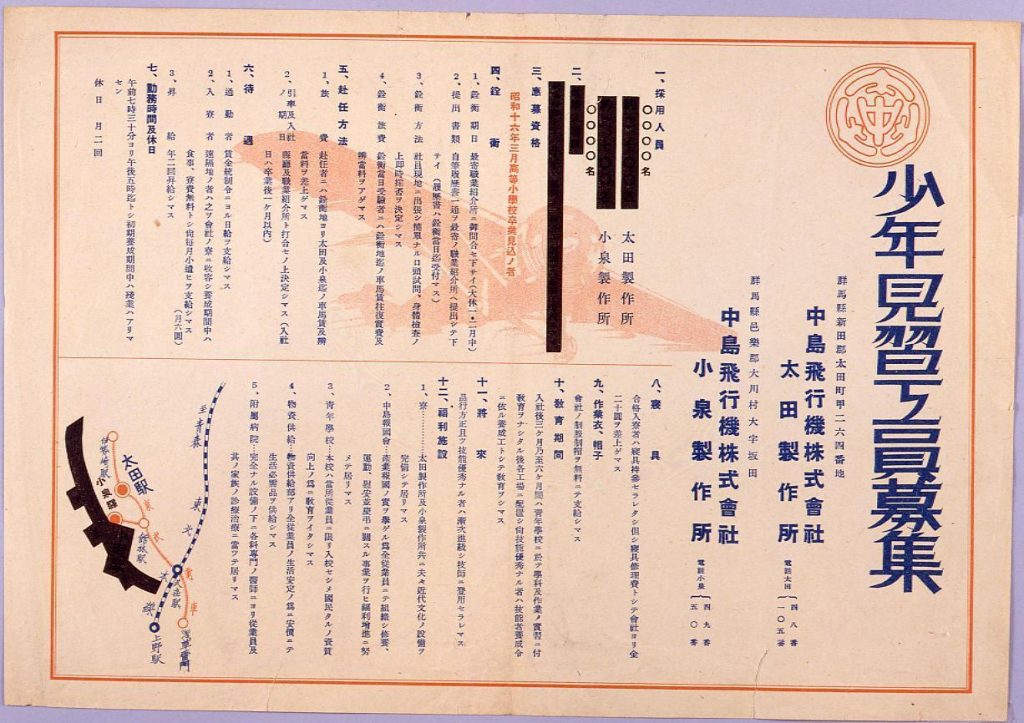 少年見習工員募集
群馬縣新田郡太田町甲二一六四番地
中島飛行機株式會社
太田製作所
電話太田{四八番
一〇五番
群馬縣邑樂郡大川村大字坂田
中島飛行機株式會社
小泉製作所
電話小泉{四九番
五〇番
一、採用人員
〇〇〇〇名
太田製作所
〇〇〇〇名
小泉製作所
二、
三、應募資格
昭和十六年三月高等小學校卒業見込ノ者
四、銓衡
1、銓衡期日 最寄職業紹介所ニ御問合セ下サイ(大体一・二月中)
2、提出書類 自筆履歴書一通ヲ最寄ノ職業紹介所ヘ提出シテ下
サイ(履歴書ハ銓衡當日迄受付マス)
3、銓衡方法 社員現地ニ出張シ簡單ナルロ頭試問、身體檢査ノ
上即時採否ヲ決定シマス
4、銓衡旅費 銓衡當日受驗者ニハ銓衡地迄ノ車馬賃往復實費及
辨當料ヲアゲマス
五、赴任方法
1、旅費 赴任者ニハ銓衡地ヨリ太田及小泉迄ノ車馬賃及辨
當料ヲ差上ゲマス
2、引率及入社
ノ期日 縣廳及職業紹介所ト打合セノ上決定シマス(入社
日ハ卒業後一ケ月以内)
六、待遇
1、通勤者 賃金統制令ニヨル日給ヲ支給シマス
2、入寮者 遠隔地ノ者ハ之ヲ會社ノ寮ニ收容シ養成期間中ハ
食事、寮費無料トシ尚毎月小遣ヒヲ支給シマス
(月六圓)
3、昇給 年二回昇給シマス
七、勤務時間及休日
午前七時三十分ヨリ午後五時迄トシ初期養成期間中ハ殘業ハアリマ
セン
休日 月二回
八、寢具
合格入寮者ハ寢具持參セラレタシ但シ寢具修理費トシテ會社ヨリ金
二十圓ヲ差上ゲマス
九、作業衣、帽子
會社ノ制服制帽ヲ無料ニテ支給シマス
十、教育期間
入社後三ケ月乃至六ケ月間ハ靑年學校ニ於テ學科及作業ノ實習ニ付
教育ヲナシタル後各工場ニ配置シ尚技能優秀ナル者ハ技能者養成令
ニ依ル養成工トシテ教育ヲシマス
十一、將來
品行方正且ツ技能優秀ナル者ハ漸次進級シ技師ニ登用セラレマス
十二、福利施設
1、寮……太田製作所及小泉製作所共ニ夫々近代文化ノ設備ヲ
完備シテ居リマス
2、中島報國會…産業報國ノ實ヲ擧ゲル爲全從業員ニテ組織シ修養、
運動、慰安並慶弔ニ關スル事業ヲ行ヒ福利增進ニ努
メテ居リマス
3、靑年學校…本校ハ當所從業員ニ限リ入校セシメ國民タルノ資質
向上ノ爲ニ教育ヲイタシマス
4、物資供給…物資供給部アリ全從業員ノ生活安定ノ爲ニ安價ニテ
生活必需品ヲ供給シマス
5、附屬病院……完全ナル設備ノ下ニ各科専門ノ醫師ニヨリ從業員及
其ノ家族ノ診療治療ニ當ツテ居リマス
至靑森
東北本線
伊勢崎駅
太田駅
小泉驛
館林駅
東武電車
久喜駅
上野駅
浅草雷門